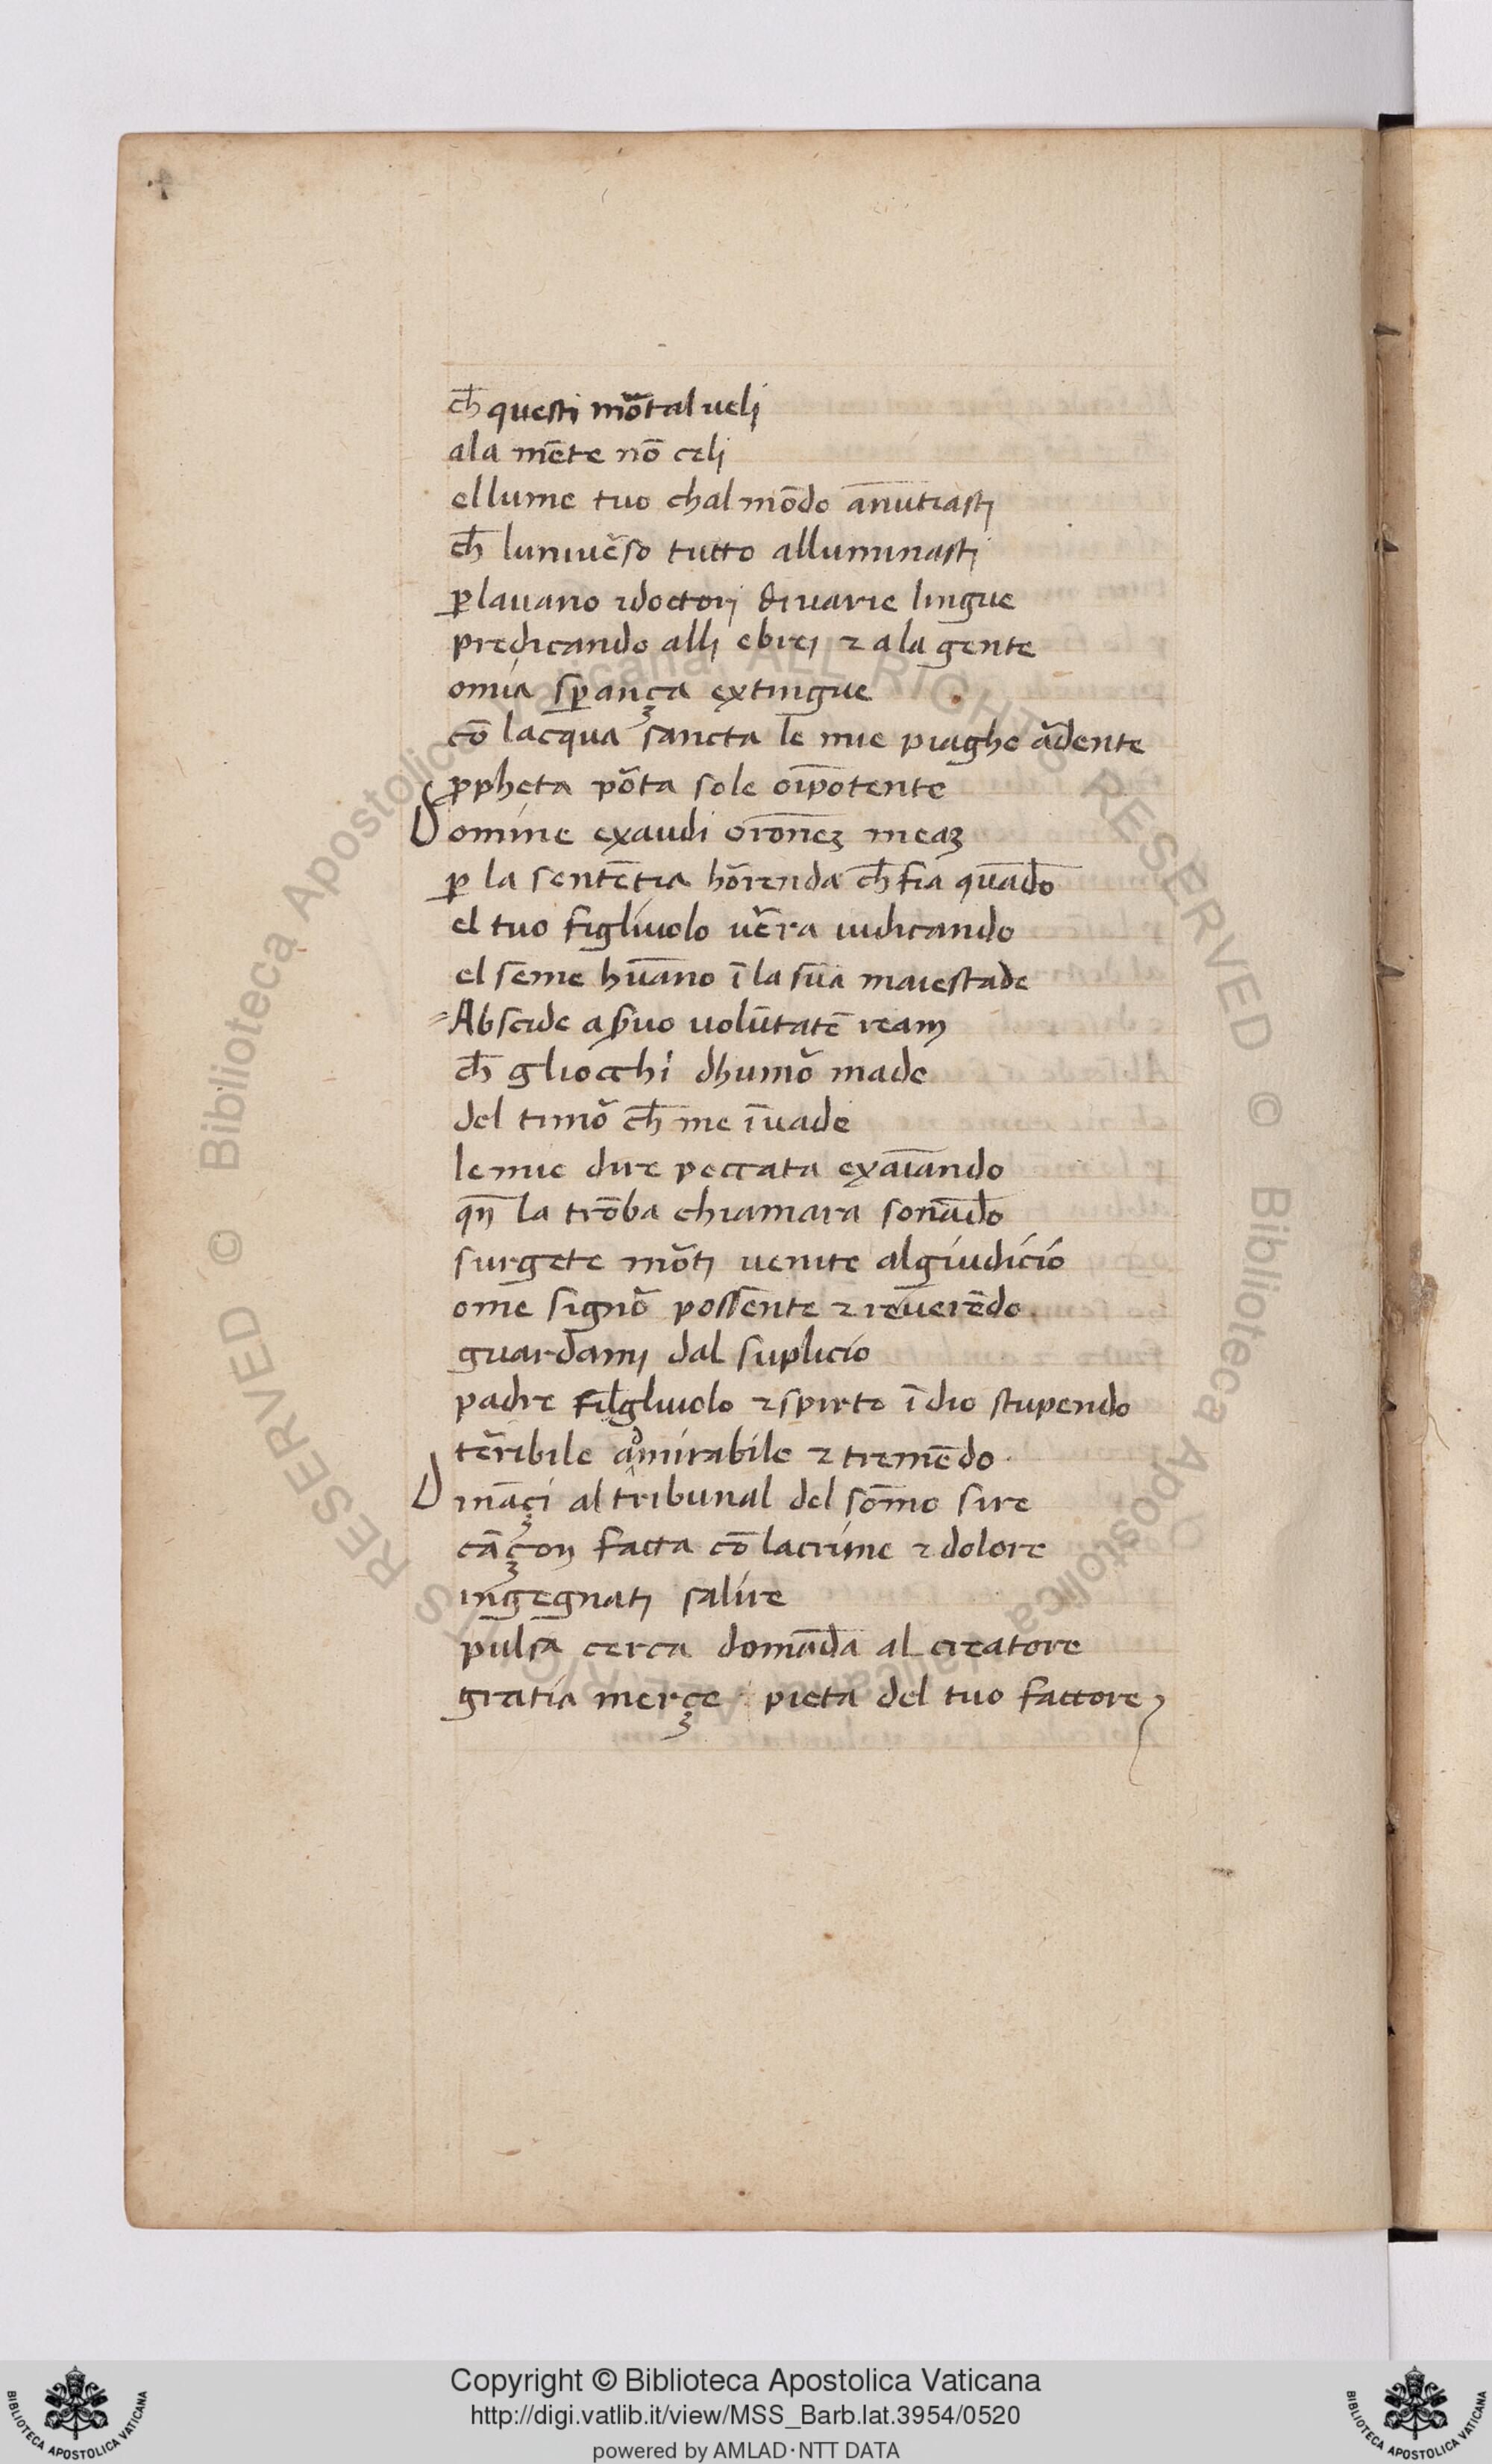 4
ch̄ questi mo᷑tal uelj
ala mēte nō celj
ellume tuo chal mōdo an̄utiastj
ch̄ luniue᷑so tutto alluminastj
ꝑlauano ⁊doctorj di uarie lingue
predicando allj ebrej ⁊ ala gente
omia sꝑança extingue
cō lacqua sancta le mie piaghe a᷑dente
ꝓpheta po᷑ta sole oīpotente
Domine exaudi orōneꝫ meaꝫ
ꝑ la sentētia ho᷑renda ch̄ fia quādo
el tuo figliuolo ue᷑ra iudicando
el seme hūano ī la sua maiestade
Abscide a suo uolūtatē ream
ch̄ gliocchi dhumo᷑ made
del timo᷑ ch̄ me īuade
le mie dire peccata exaīando
qn̄ la trōba chiamara sonādo
surgete mo᷑tj uenite algiudicio
ome signo᷑ possente ⁊ reuerēdo
guardamj dal suplicio
padre filgliuolo ⁊ spirto ī dio stupendo
te᷑ribile admirabile ⁊ tremēdo
Dināçi al tribunal del sōmo sire
cāçon facta cō lacrime ⁊ dolore
ingegnatj salire
pulsa cerca domāda al creatore
gratia merçe pieta del tuo factore
Copyright © Biblioteca Apostolica Vaticana
http://digi.vatlib.it/view/MSS_Barb.lat.3954/0520
powered by AMLAD·NTT DATA
BIBLIOTECA APOSTOLICA VATICANA
BIBLIOTECA APOSTOLICA VATICANA
© Biblioteca Apostolica Vaticana ALL RIGHTS RESERVED © Biblioteca Apostolica Vaticana ALL RIGHTS RESERVED